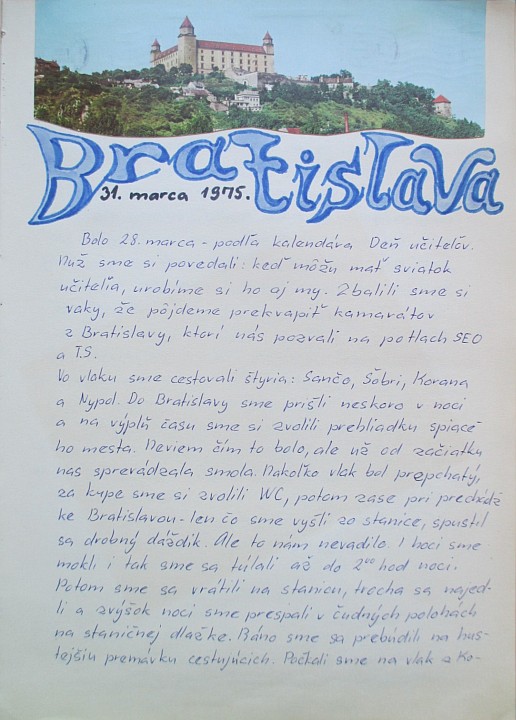 Bratislava
31. marca 1975.
Bolo 28. marca - podľa kalendára Deň učiteľov.
Nuž sme si povedali: keď môžu mať sviatok
učitelia, urobíme si ho aj my. Zbalili sme si
vaky, že pôjdeme prekvapiť kamarátov
z Bratislavy, ktorí nás pozvali na potlach SEO
a T.S.
Vo vlaku sme cestovali štyria: Sančo, Šobri, Korana
a Nypol. Do Bratislavy sme prišli neskoro v noci
a na výplň času sme si zvolili prehliadku spiacé-
ho mesta. Neviem čím to bolo, ale už od začiatku
nas sprevádzala smola. Nakoľko vlak bol prepchatý,
za kupe sme si zvolili WC, potom zase pri prechádz
ke Bratislavou - len čo sme vyšli zo stanice, spustil
sa drobný dáždik. Ale to nám nevadilo. I hoci sme
mokli i tak sme sa túlali až do 2⁰⁰ hod noci.
Potom sme sa vrátili na stanicu, trocha sa najed-
li a zvyšok noci sme prespali v čudných polohách
na staničnej dlažke. Ráno sme sa prebúdili na hus-
tejšiu premávku cestujúcich. Počkali sme na vlak z Ko-